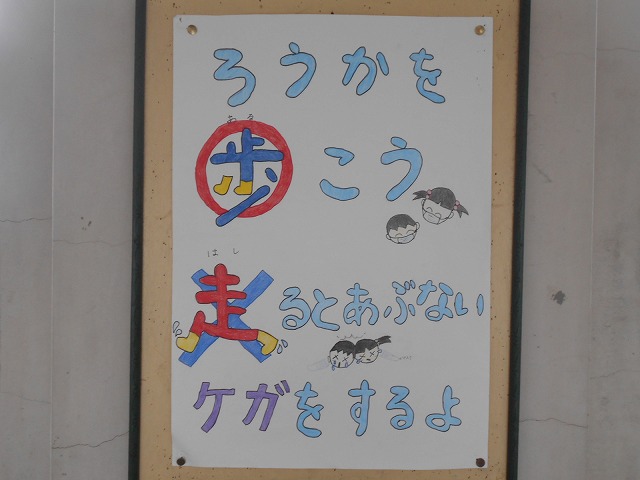 ろうかを
ある
歩こう
はし
走るとあぶない
ケガをするよ